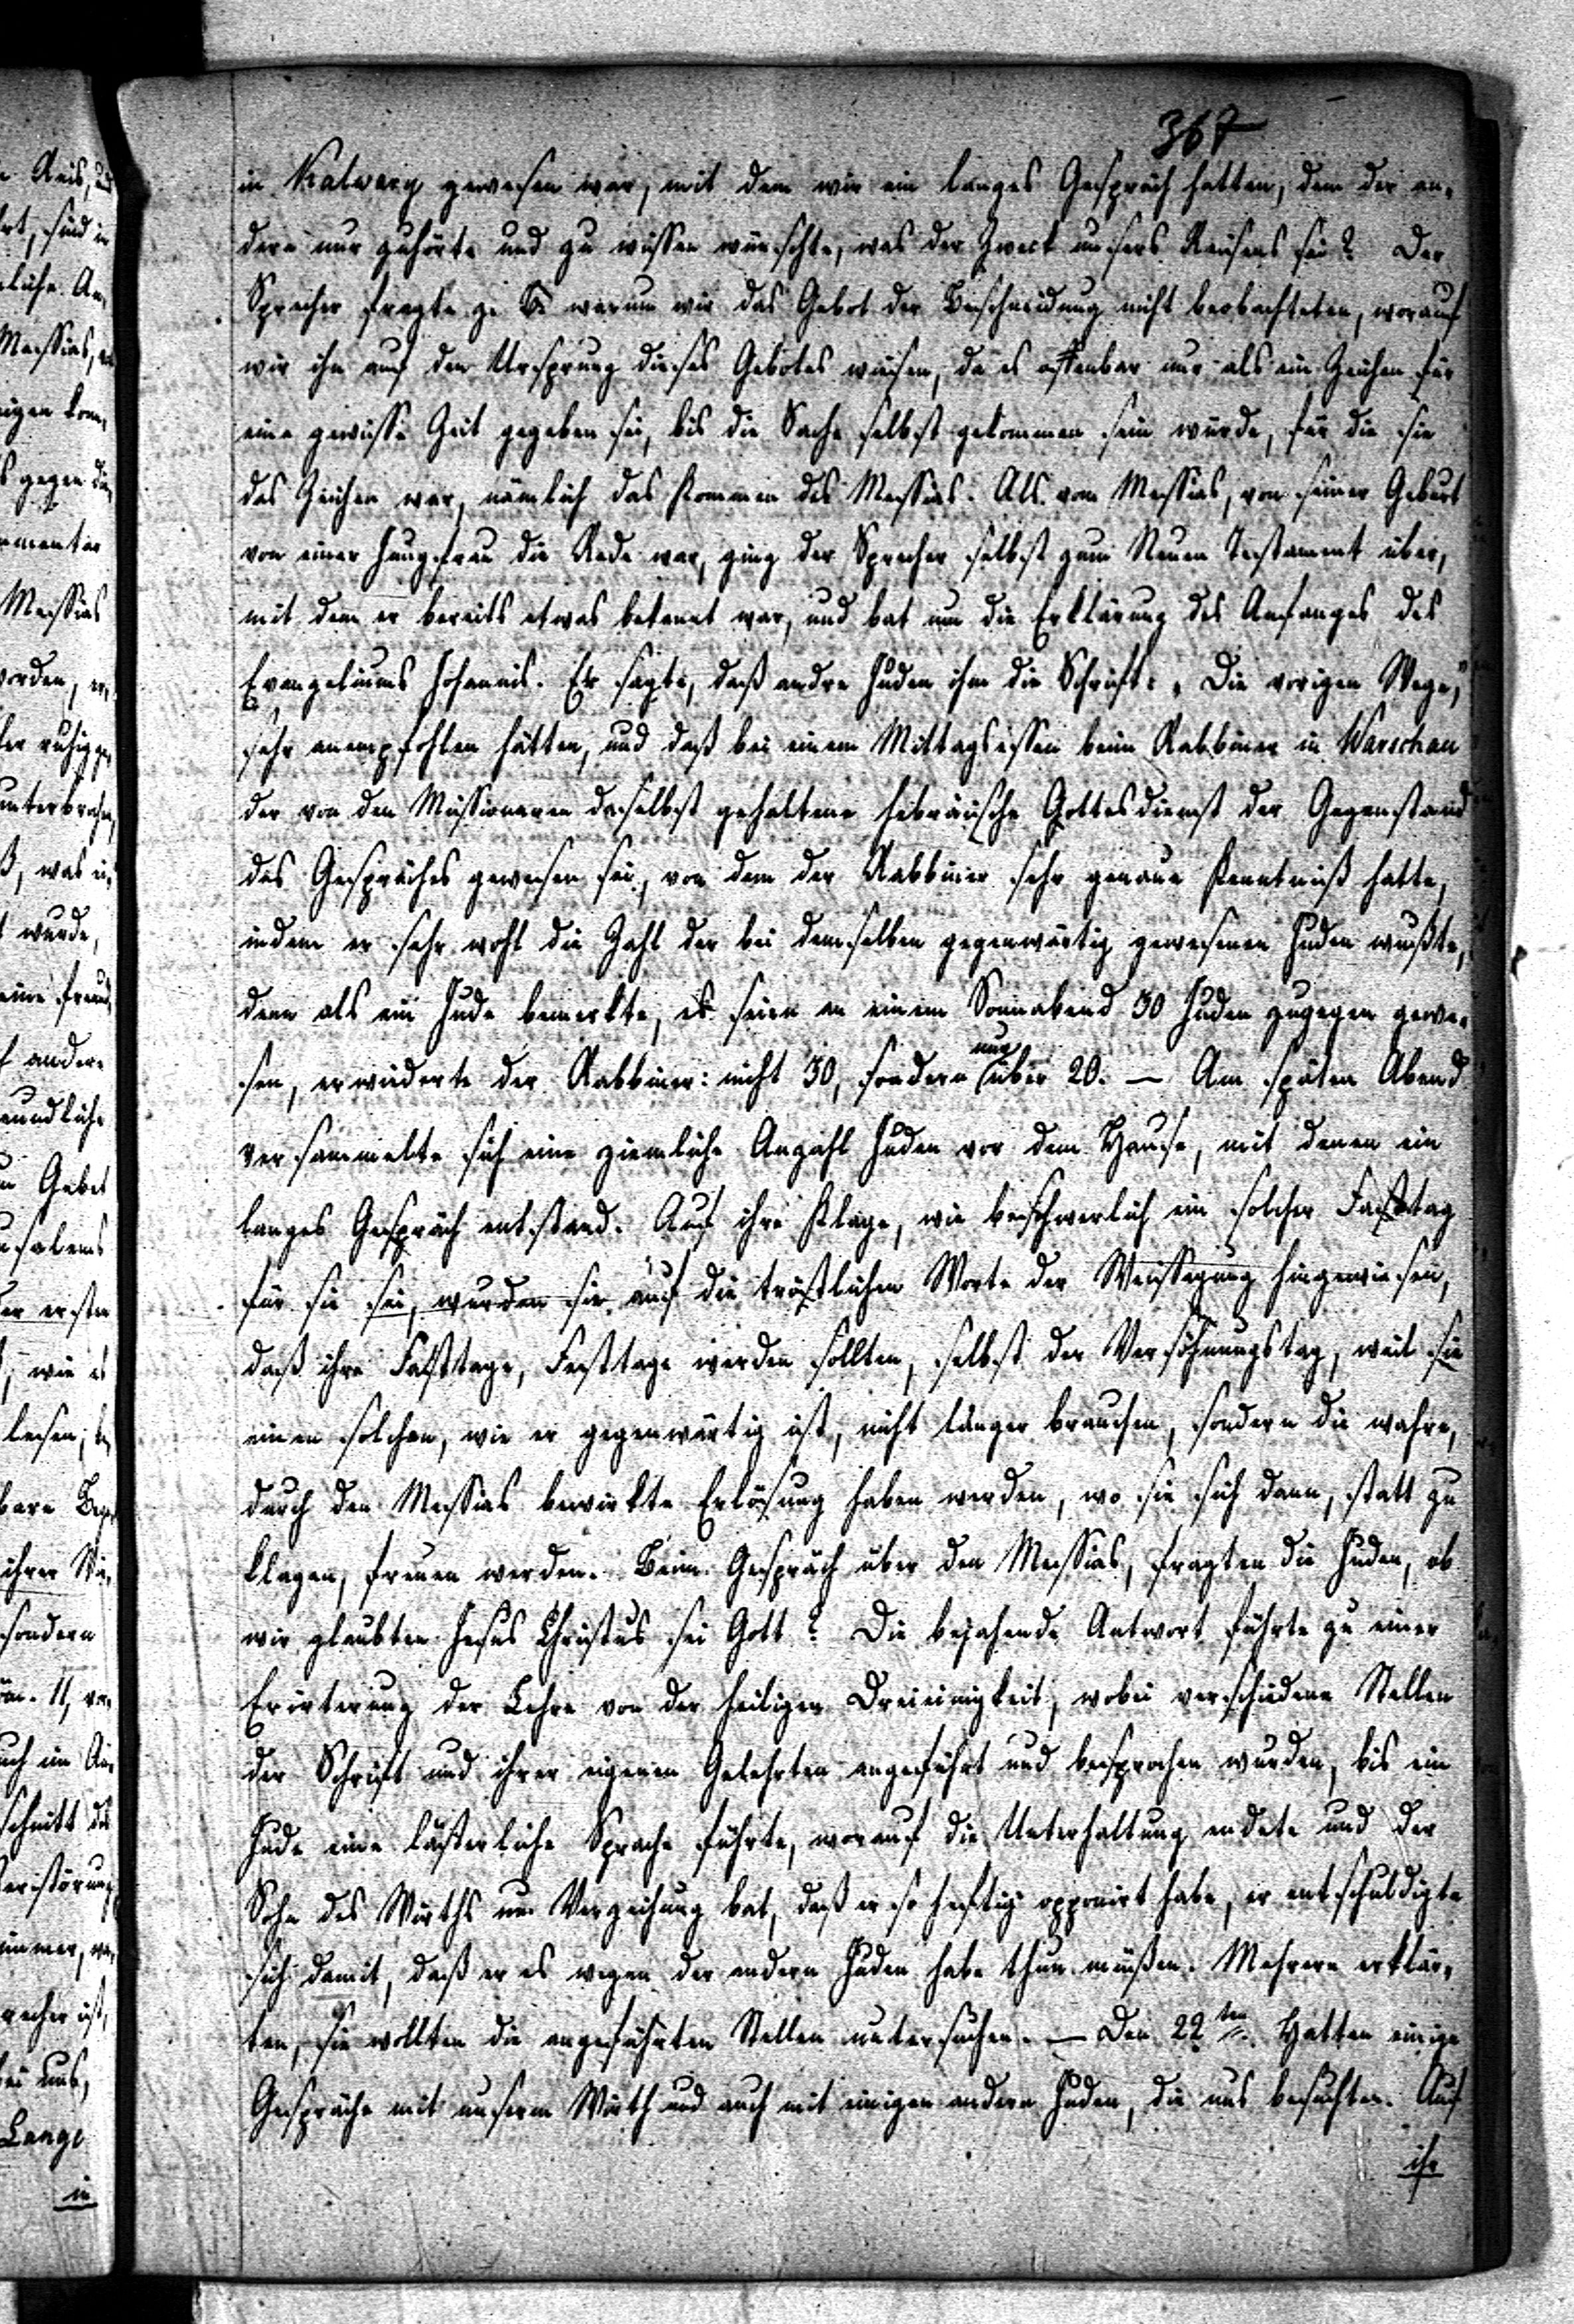 367
in Kalwary gewesen war, mit dem wir ein langes Gespräch hatten, dem der an-
dere nur zuhörte und zu wissen wünschte, was der Zweck unsers Reisens sei? Der
Sprecher fragte z. B. warum wir das Gebot der Beschneidung nicht beobachteten, worauf
wir ihn auf den Ursprung dieses Gebotes wiesen, da es offenbar nur als ein Zeichen für
eine gewisse Zeit gegeben sei, bis die Sache selbst gekommen sein würde, für die sie
das Zeichen war, nämlich das Kommen des Messias. Als vom Messias, von seiner Geburt
von einer Jungfrau die Rede war, ging der Sprecher selbst zum Neuen Testament über,
mit dem er bereits etwas bekannt war, und bat um die Erklärung des Anfanges des
Evangeliums Johannis. Er sagte, daß andre Juden ihm die Schrift: „Die vorigen Wege,"
sehr anempfohlen hätten, und daß bei einem Mittagsessen beim Rabbiner in Warschau
der von den Missionaren daselbst gehaltene hebräische Gottesdienst der Gegenstand
des Gespräches gewesen sei, von dem der Rabbiner sehr genaue Kenntniß hatte,
indem er sehr wohl die Zahl der bei demselben gegenwärtig gewesenen Juden wußte,
denn als ein Jude bemerkte, es seien an einem Sonnabend 30 Juden zugegen gewe-
sen, erwiederte der Rabbiner: nicht 30, sondern nur über 20. — Am späten Abend
versammelte sich eine ziemliche Anzahl Juden vor dem Hause, mit denen ein
langes Gespräch entstand. Auf ihre Klage, wie beschwerlich ein solcher Fasttag
für sie sei, wurden sie auf die tröstlichen Worte der Weissagung hingewiesen,
daß ihre Fasttage, Festtage werden sollten, selbst der Versöhnungstag, weil sie
einen solchen, wie er gegenwärtig ist, nicht länger brauchen, sondern die wahre,
durch den Messias bewirkte Erlösung haben werden, wo sie sich dann, statt zu
klagen, freuen werden. Beim Gespräch über den Messias, fragten die Juden, ob
wir glaubten Jesus Christus sei Gott? Die bejahende Antwort führte zu einer
Erörterung der Lehre von der heiligen Dreieinigkeit, wobei verschiedene Stellen
der Schrift und ihrer eigenen Gelehrten angeführt und besprochen wurden, bis ein
Jude eine lästerliche Sprache führte, worauf die Unterhaltung endete und der
Sohn des Wirths um Verzeihung bat, daß er so heftig opponirt habe, er entschuldigte
sich damit, daß er es wegen der andern Juden habe thun müßen. Mehrere erklär-
ten, sie wollten die angeführten Stellen untersuchen. — Den 22ten. Hatten einige
Gespräche mit unserm Wirth und auch mit einigen andern Juden, die uns besuchten. Auf
ihr